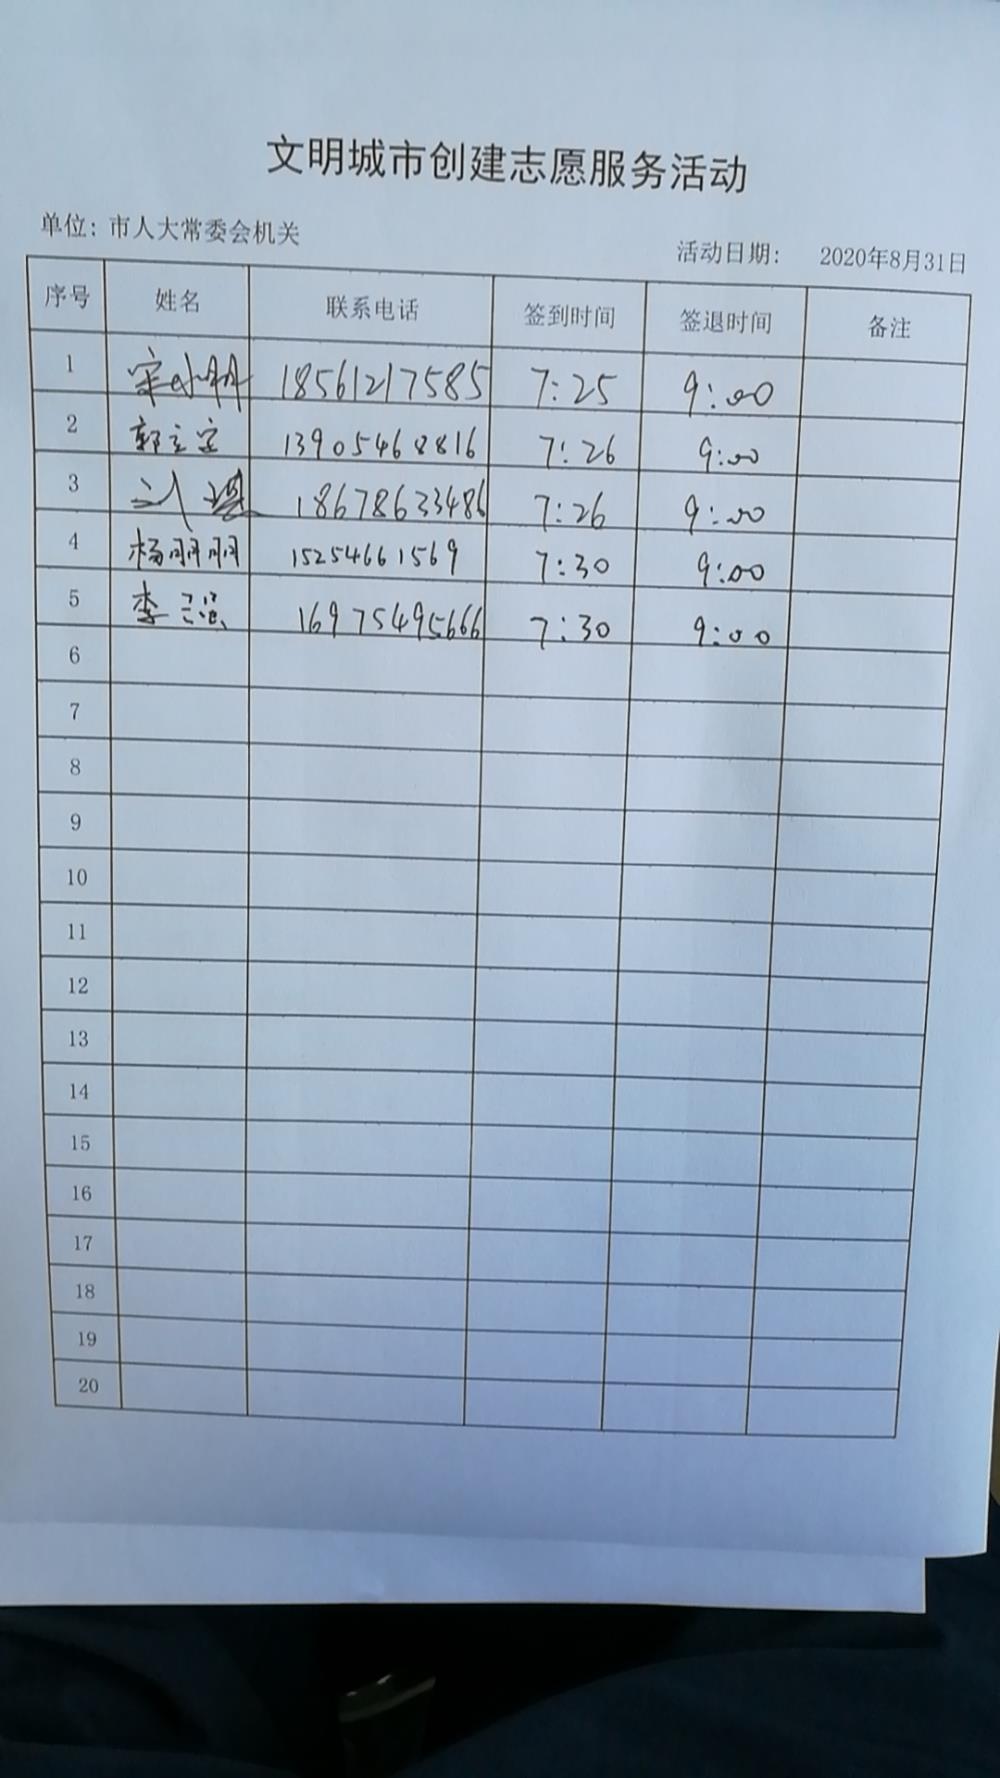 文明城市创建志愿服务活动
单位：市人大常委会机关
活动日期： 2020年8月31日
序号 姓名 联系电话 签到时间 签退时间 备注
1 宋小明 18561217585 7:25 9:00
2 郭立宝 13905468816 7:26 9:00
3 18678633486 7:26 9:00
4 杨丽丽 15254661569 7:30 9:00
5 李 16975495666 7:30 9:00
6
7
8
9
10
11
12
13
14
15
16
17
18
19
20